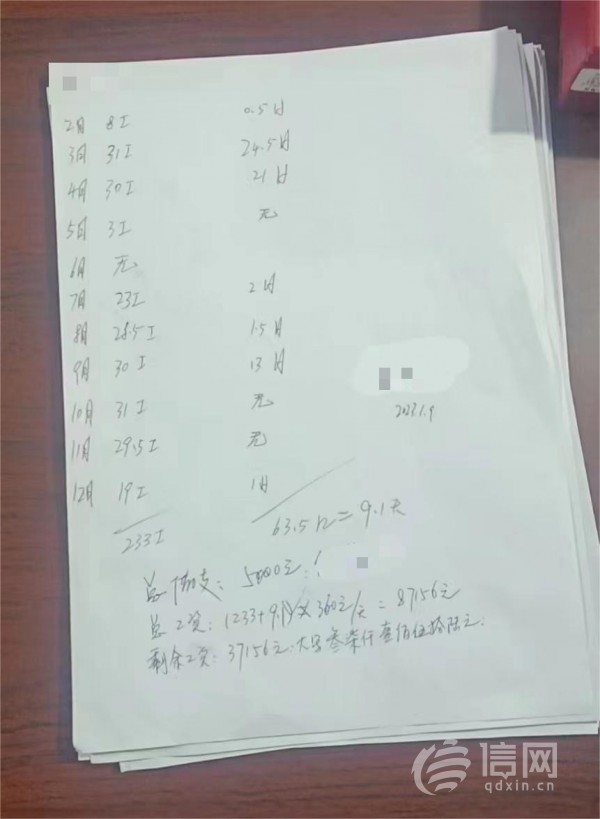 2月 8工 0.5时
3月 31工 24.5时
4月 30工 21时
5月 3工 无
6月 无
7月 23工 2时
8月 28.5工 1.5时
9月 30工 13时
10月 31工 无
2023.1.9
11月 29.5工 无
12月 19工 1时
233工 63.5h=9.1天
总借支: 5000元
总工资: (233+9.1)×360元/天=87156元
剩余工资: 37156元.大写叁柒仟壹佰伍拾陆元.
信网
qdxin.cn